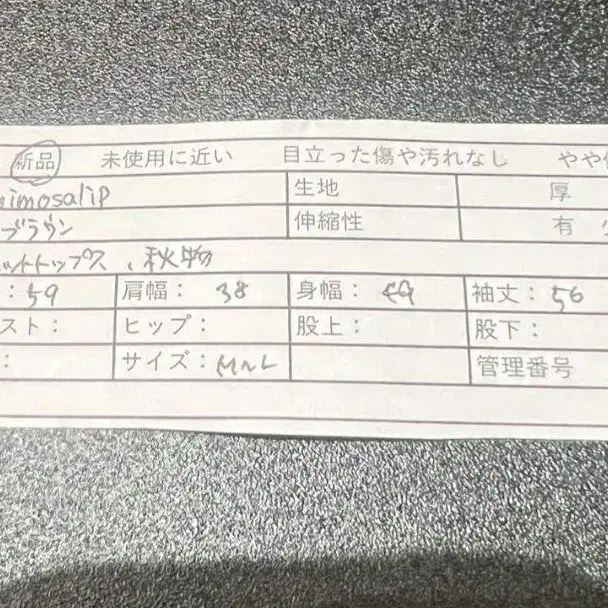 新品 未使用に近い 目立った傷や汚れなし やや
imosalip 生地 厚
ブラウン 伸縮性 有 少
ットトップス、秋物
：59 肩幅：38 身幅：49 袖丈：56
スト： ヒップ： 股上： 股下：
： サイズ：M〜L 管理番号